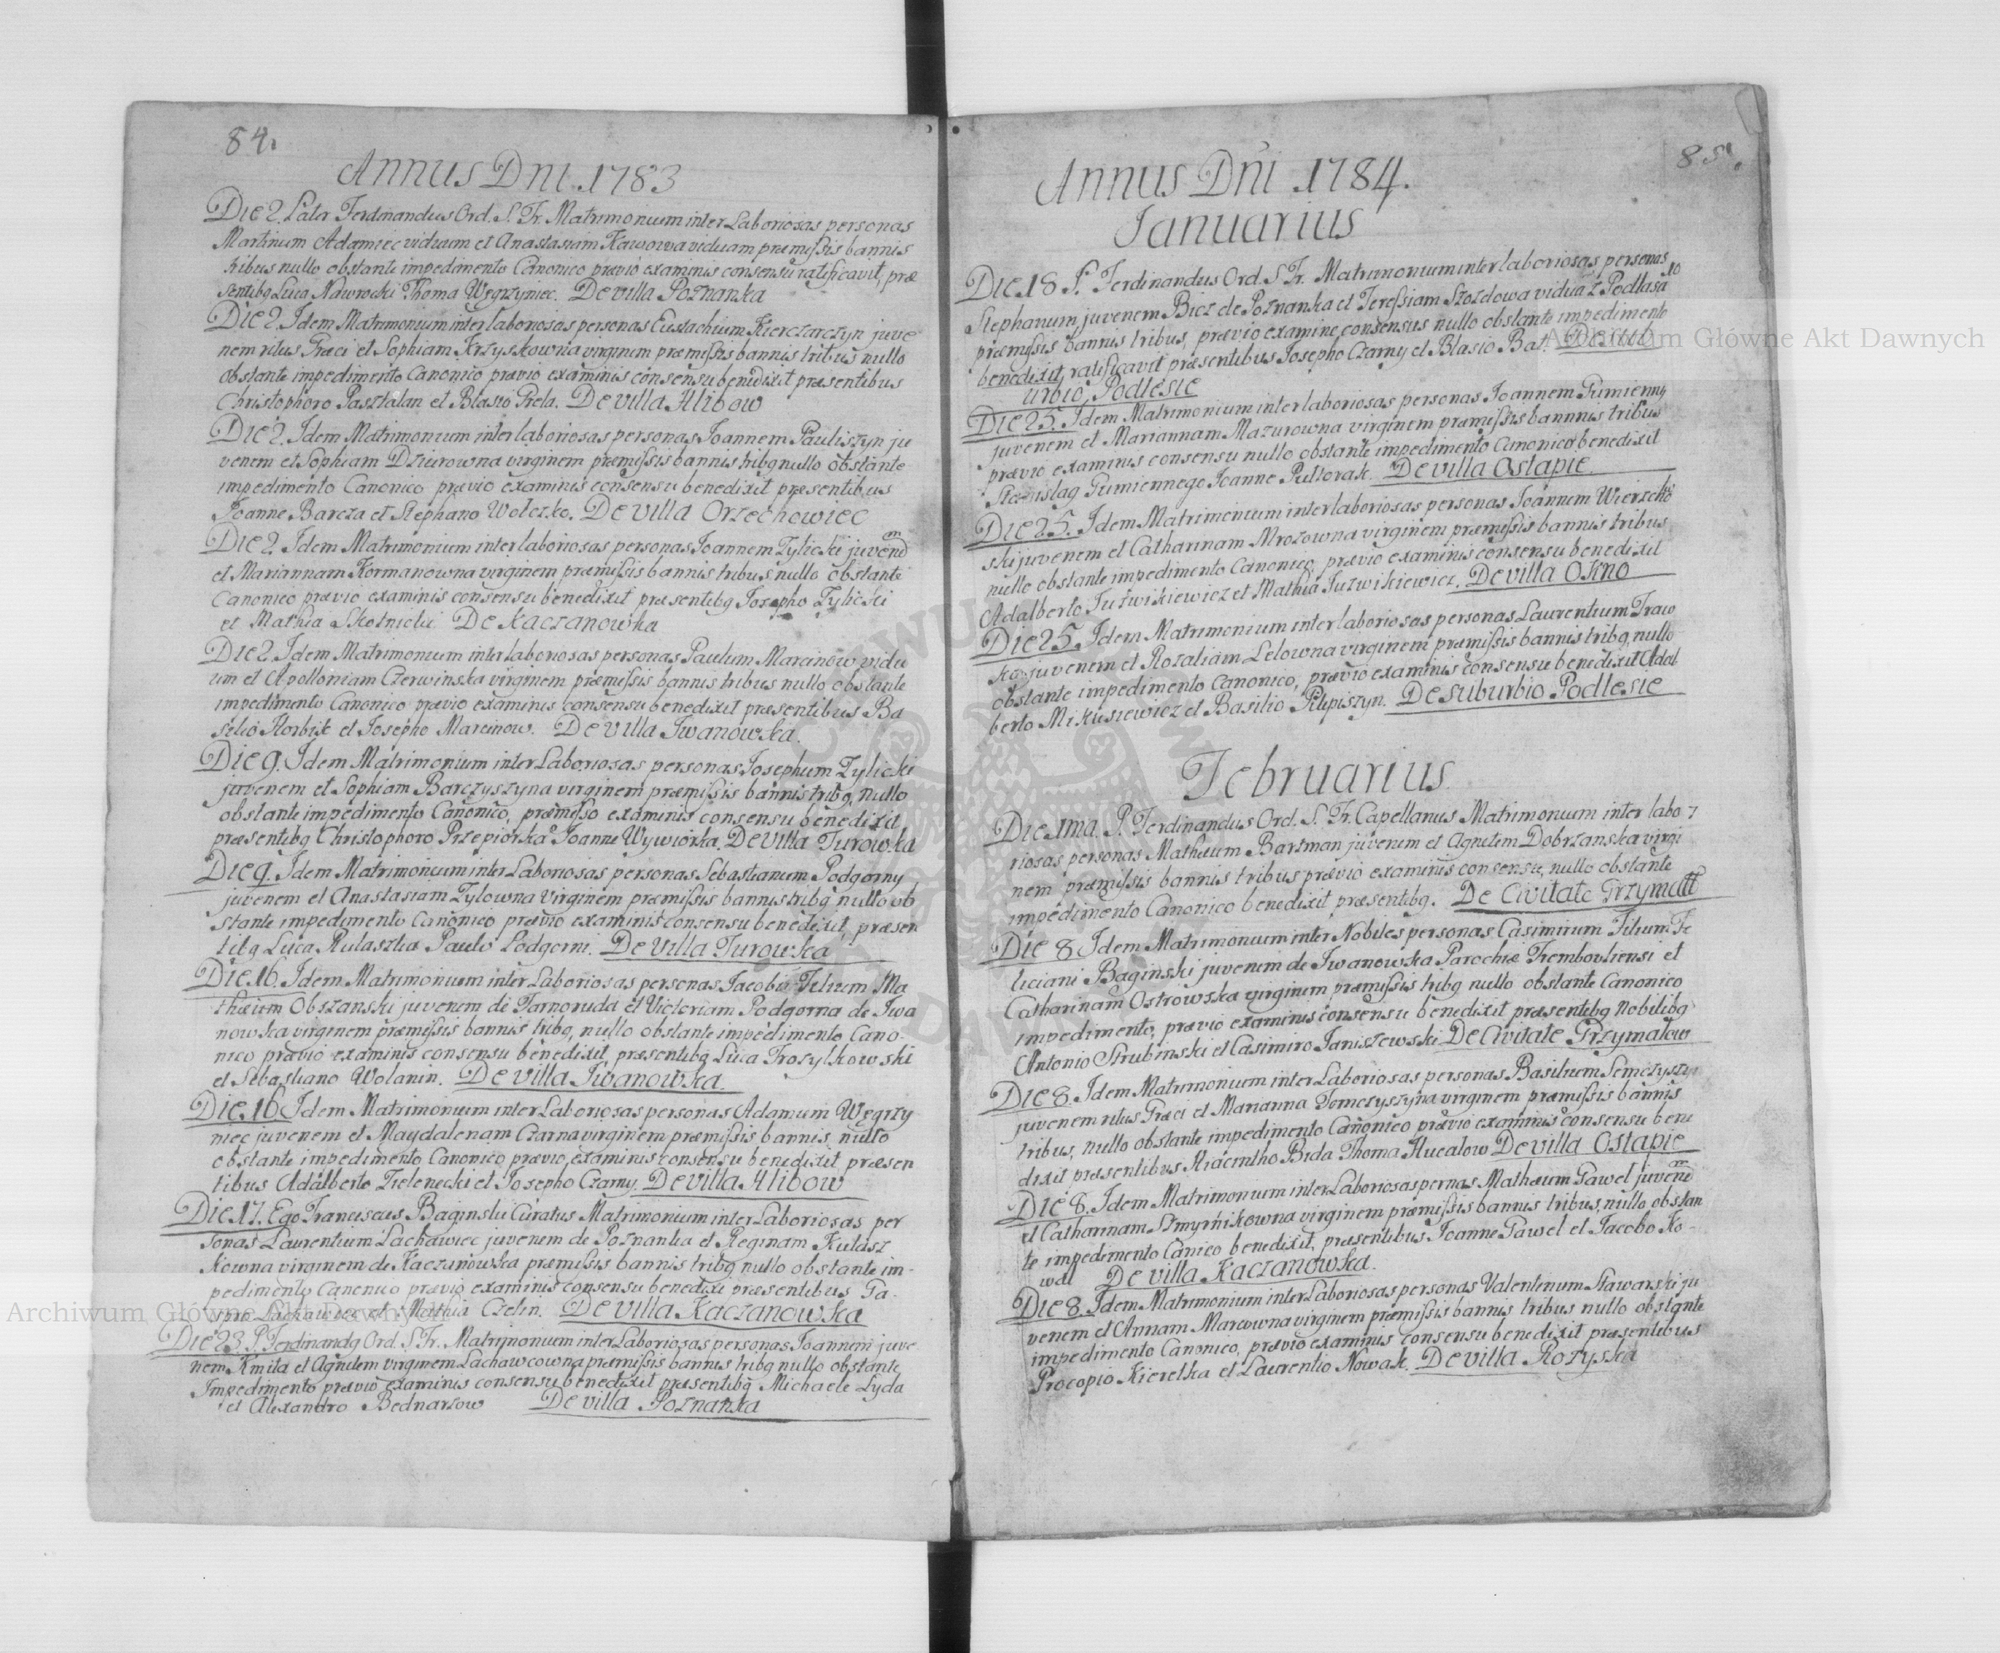 84.
Annus Dni. 1783
Die 2. Pater Ferdinandus Ord. S. Fr. Matrimonium inter Laboriosas personas
Martinum Adamiec viduum et Anastasiam Kawowa viduam præmissis bannis
tribus nullo obstante impedimento Canonico prævio examinis consensu ratificavit, præ
sentibq Luca Nawrocki Thoma Węgrzyniec. De villa Poznanka
Die 2. Idem Matrimonium inter laboriosas personas Eustachium Kierczarczyn juve
nem ritus Græci et Sophiam Krzyskowna virginem præmissis bannis tribus nullo
obstante impedimento Canonico prævio examinis consensu benedixit præsentibus
Christophoro Pasztalan et Blasio Grela. De villa Hlibow
Die 2. Idem Matrimonium inter laboriosas personas Joannem Pauliszyn ju
venem et Sophiam Dziurowna virginem præmissis bannis tribq nullo obstante
impedimento Canonico prævio examinis consensu benedixit præsentibus
Joanne Barcza et Stephano Wołczko. De villa Orzechowiec
Die 2. Idem Matrimonium inter laboriosas personas Joannem Zylicki juvenem
et Mariannam Kormanowna virginem præmissis bannis tribus nullo obstante
Canonico prævio examinis consensu benedixit præsentibq Josepho Zylicki
et Mathia Skotnicki De Kaczanowka
Die 2. Idem Matrimonium inter laboriosas personas Paulum Marcinow vidu
um et Apolloniam Czerwinska virginem præmissis bannis tribus nullo obstante
impedimento Canonico prævio examinis consensu benedixit præsentibus Ba
silio Horbik et Josepho Marcinow. De villa Iwanowka.
Die 9. Idem Matrimonium inter Laboriosas personas Josephum Zylicki
juvenem et Sophiam Barczyszyna virginem præmissis bannis tribq, nullo
obstante impedimento Canonico, præmisso examinis consensu benedixit
præsentibq Christophoro Przepiorka Joanne Wywiorka. De villa Turowka
Die 9. Idem Matrimonium inter Laboriosas personas Sebastianum Podgorny
juvenem et Anastasiam Zylowna virginem præmissis bannis tribq nullo ob
stante impedimento Canonico prævio examinis consensu benedixit, præsen
tibq Luca Kulaszka Paulo Podgorni. De villa Turowka
Die 16. Idem Matrimonium inter Laboriosas personas Jacobū Filium Ma
thæum Obszanski juvenem de Tarnoruda et Victoriam Podgorna de Iwa
nowska virginem præmissis bannis tribq, nullo obstante impedimento Cano-
nico prævio examinis consensu benedixit, præsentibq Luca Trozylkowski
et Sebastiano Wolanin. De villa Iwanowka.
Die 16 Idem Matrimonium inter Laboriosas personas Adamum Węgrzy
niec juvenem et Maydalenam Czarna virginem præmissis bannis, nullo
obstante impedimento Canonico prævio examinis consensu benedixit præsen
tibus Adalberto Zielenecki et Josepho Czarny. De villa Hlibow
Die 17. Ego Franciscus Baginski Curatus Matrimonium inter Laboriosas per
sonas Laurentium Lachawiec juvenem de Poznanka et Reginam Kułasz
kowna virginem de Kaczanowka præmissis bannis tribq nullo obstante im-
pedimento Canonico prævio examinis consensu benedixi præsentibus Ga-
spro Lachawiec et Mathia Czelin. De villa Kaczanowka
Die 23. P. Ferdinandq Ord. S. Fr. Matrimonium inter Laboriosas personas Joannem juve-
nem Kmita et Agnetem virginem Lachawcowna præmissis bannis tribq nullo obstante
Impedimento prævio examinis consensu benedixit præsentibq Michaele Lyda
et Alexandro Bednarzow De villa Poznanka
85.
Annus Dni 1784.
Ianuarius
Die 18 P. Ferdinandus Ord. S. Fr. Matrimonium inter laboriosas personas
Stephanum juvenem Bicz de Poznanka et Teressiam Szozdowa vidua z Podlasa
præmissis bannis tribus, prævio examine consensus nullo obstante impedimento
benedixit, ratificavit præsentibus Josepho Czarny et Blasio Bat. De sub
urbio Podlesie
Die 25. Idem Matrimonium inter laboriosas personas Joannem Gumienny
juvenem et Mariannam Mazurowna virginem præmissis bannnis tribus
prævio examinis consensu nullo obstante impedimento Canonico benedixit
Stanislaq Gumiennego Joanne Pultorak. De villa Ostapie.
Die 25. Idem Matrimonium inter laboriosas personas Joannem Wierzcho
ski juvenem et Catharinam Mrozowna virginem præmissis bannis tribus
nullo obstante impedimento Canonico, prævio examinis consensu benedixit
Adalberto Jutwikiewicz et Mathia Jutwikiewicz. De villa Okno
Die 25. Idem Matrimonium inter laboriosas personas Laurentium Traw
ko juvenem et Rozaliam Lelowna virginem præmissis bannis tribq, nullo
obstante impedimento Canonico, prævio examinis consensu benedixit Adal
berto Mikusiewicz et Basilio Pilipiszyn. De suburbio Podlesie
Februarius
Die 1ma. P. Ferdinandus Ord. S. Fr. Capellanus Matrimonium inter labo
riosas personas Mathæum Bartman juvenem et Agnetem Dobrzanska virgi
nem præmissis bannis tribus prævio examinis consensu, nullo obstante
impedimento Canonico benedixit præsentibq. De Civitate Grzymałł
Die 8 Idem Matrimonium inter Nobiles personas Casimirum Filium Fe
liciani Baginski juvenem de Iwanowka Parochiæ Trembovliensi et
Catharinam Ostrowska virginem præmissis tribq nullo obstante Canonico
impedimento, prævio examinis consensu benedixit præsentibq Nobilibq
Antonio Strubinski et Casimiro Janiszewski De Civitate Grzymałow
Die 8. Idem Matrimonium inter Laboriosas personas Basilium Semczyszyn
juvenem ritus Græci et Marianna Tomczyszyna virginem præmissis bannis
tribus, nullo obstante impedimento Canonico prævio examinis consensu bene
dixit præsentibus Hiacintho Bida Thoma Hucalow De villa Ostapie
Die 8. Idem Matrimonium inter Laboriosas pernas Mathæum Gawel juvenem
et Catharinam Szmyrnikowna virginem præmissis bannis tribus, nullo obstan
te impedimento Canico benedixit, præsentibus Joanne Gawel et Jacobo Ko-
wal De villa Kaczanowka.
Die 8. Idem Matrimonium inter Laboriosas personas Valentinum Stawarski ju
venem et Annam Marcowna virginem præmissis bannis tribus nullo obstante
impedimento Canonico, prævio examinis consensu benedixit præsentibus
Procopio Kierelka et Laurentio Nowak. De villa Rozyska
Archiwum Główne Akt Dawnych
Archiwum Główne Akt Dawnych